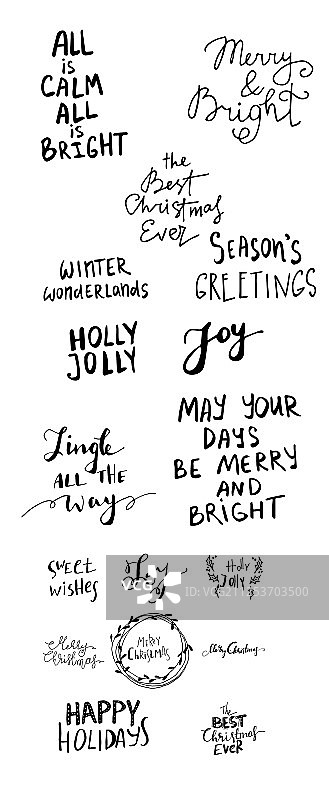 ALL
is
CALM
ALL
is
BRIGHT
Merry
&
Bright
the
Best
Christmas
Ever
SEASON'S
GREETINGS
WINTER
wonderlands
HOLLY
JOLLY
Joy
MAY YOUR
DAYS
BE MERRY
AND
BRIGHT
Jingle
ALL THE
Way
SWEET
WISHES
Joy
Holly
Jolly
VCG
Merry
Christmas
MERRY
CHRISTMAS
Merry Christmas
HAPPY
HOLIDAYS
The
BEST
Christmas
EVER